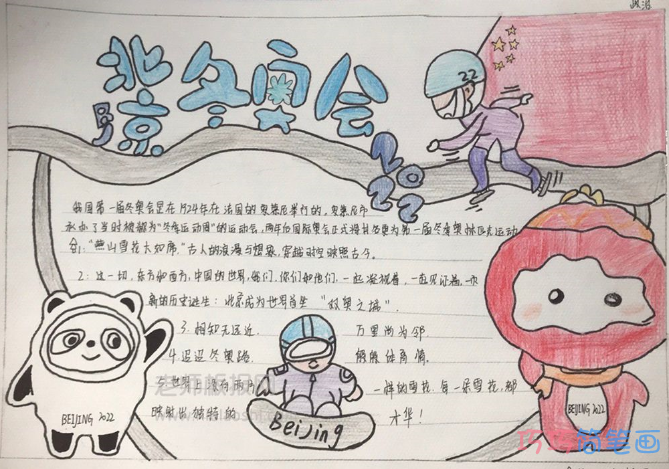 北京冬奥会
2022
22
第一届冬奥会是在1924年在法国的
举办了当时被称为"冬季运动周"的运动会，两年后国际奥会正式将其
会，"燕山雪花大如席"古人的浪漫与想象，穿越时空映照古今。
2：这一切，东方和西方，中国的世界，我们，你们和他们，一起凝视着，一起见证着，一次
新的历史诞生：北京成为世界首座"双奥之城"
3.相知无远近， 万里尚为邻
4.迢迢冬奥路， 体育情
5.世界上没有两片 一样的雪花，每一朵雪花，都
映射出独特的 才华！
BEIJING 2022
Beijing
BEIJING 2022
老师板报网
简笔画